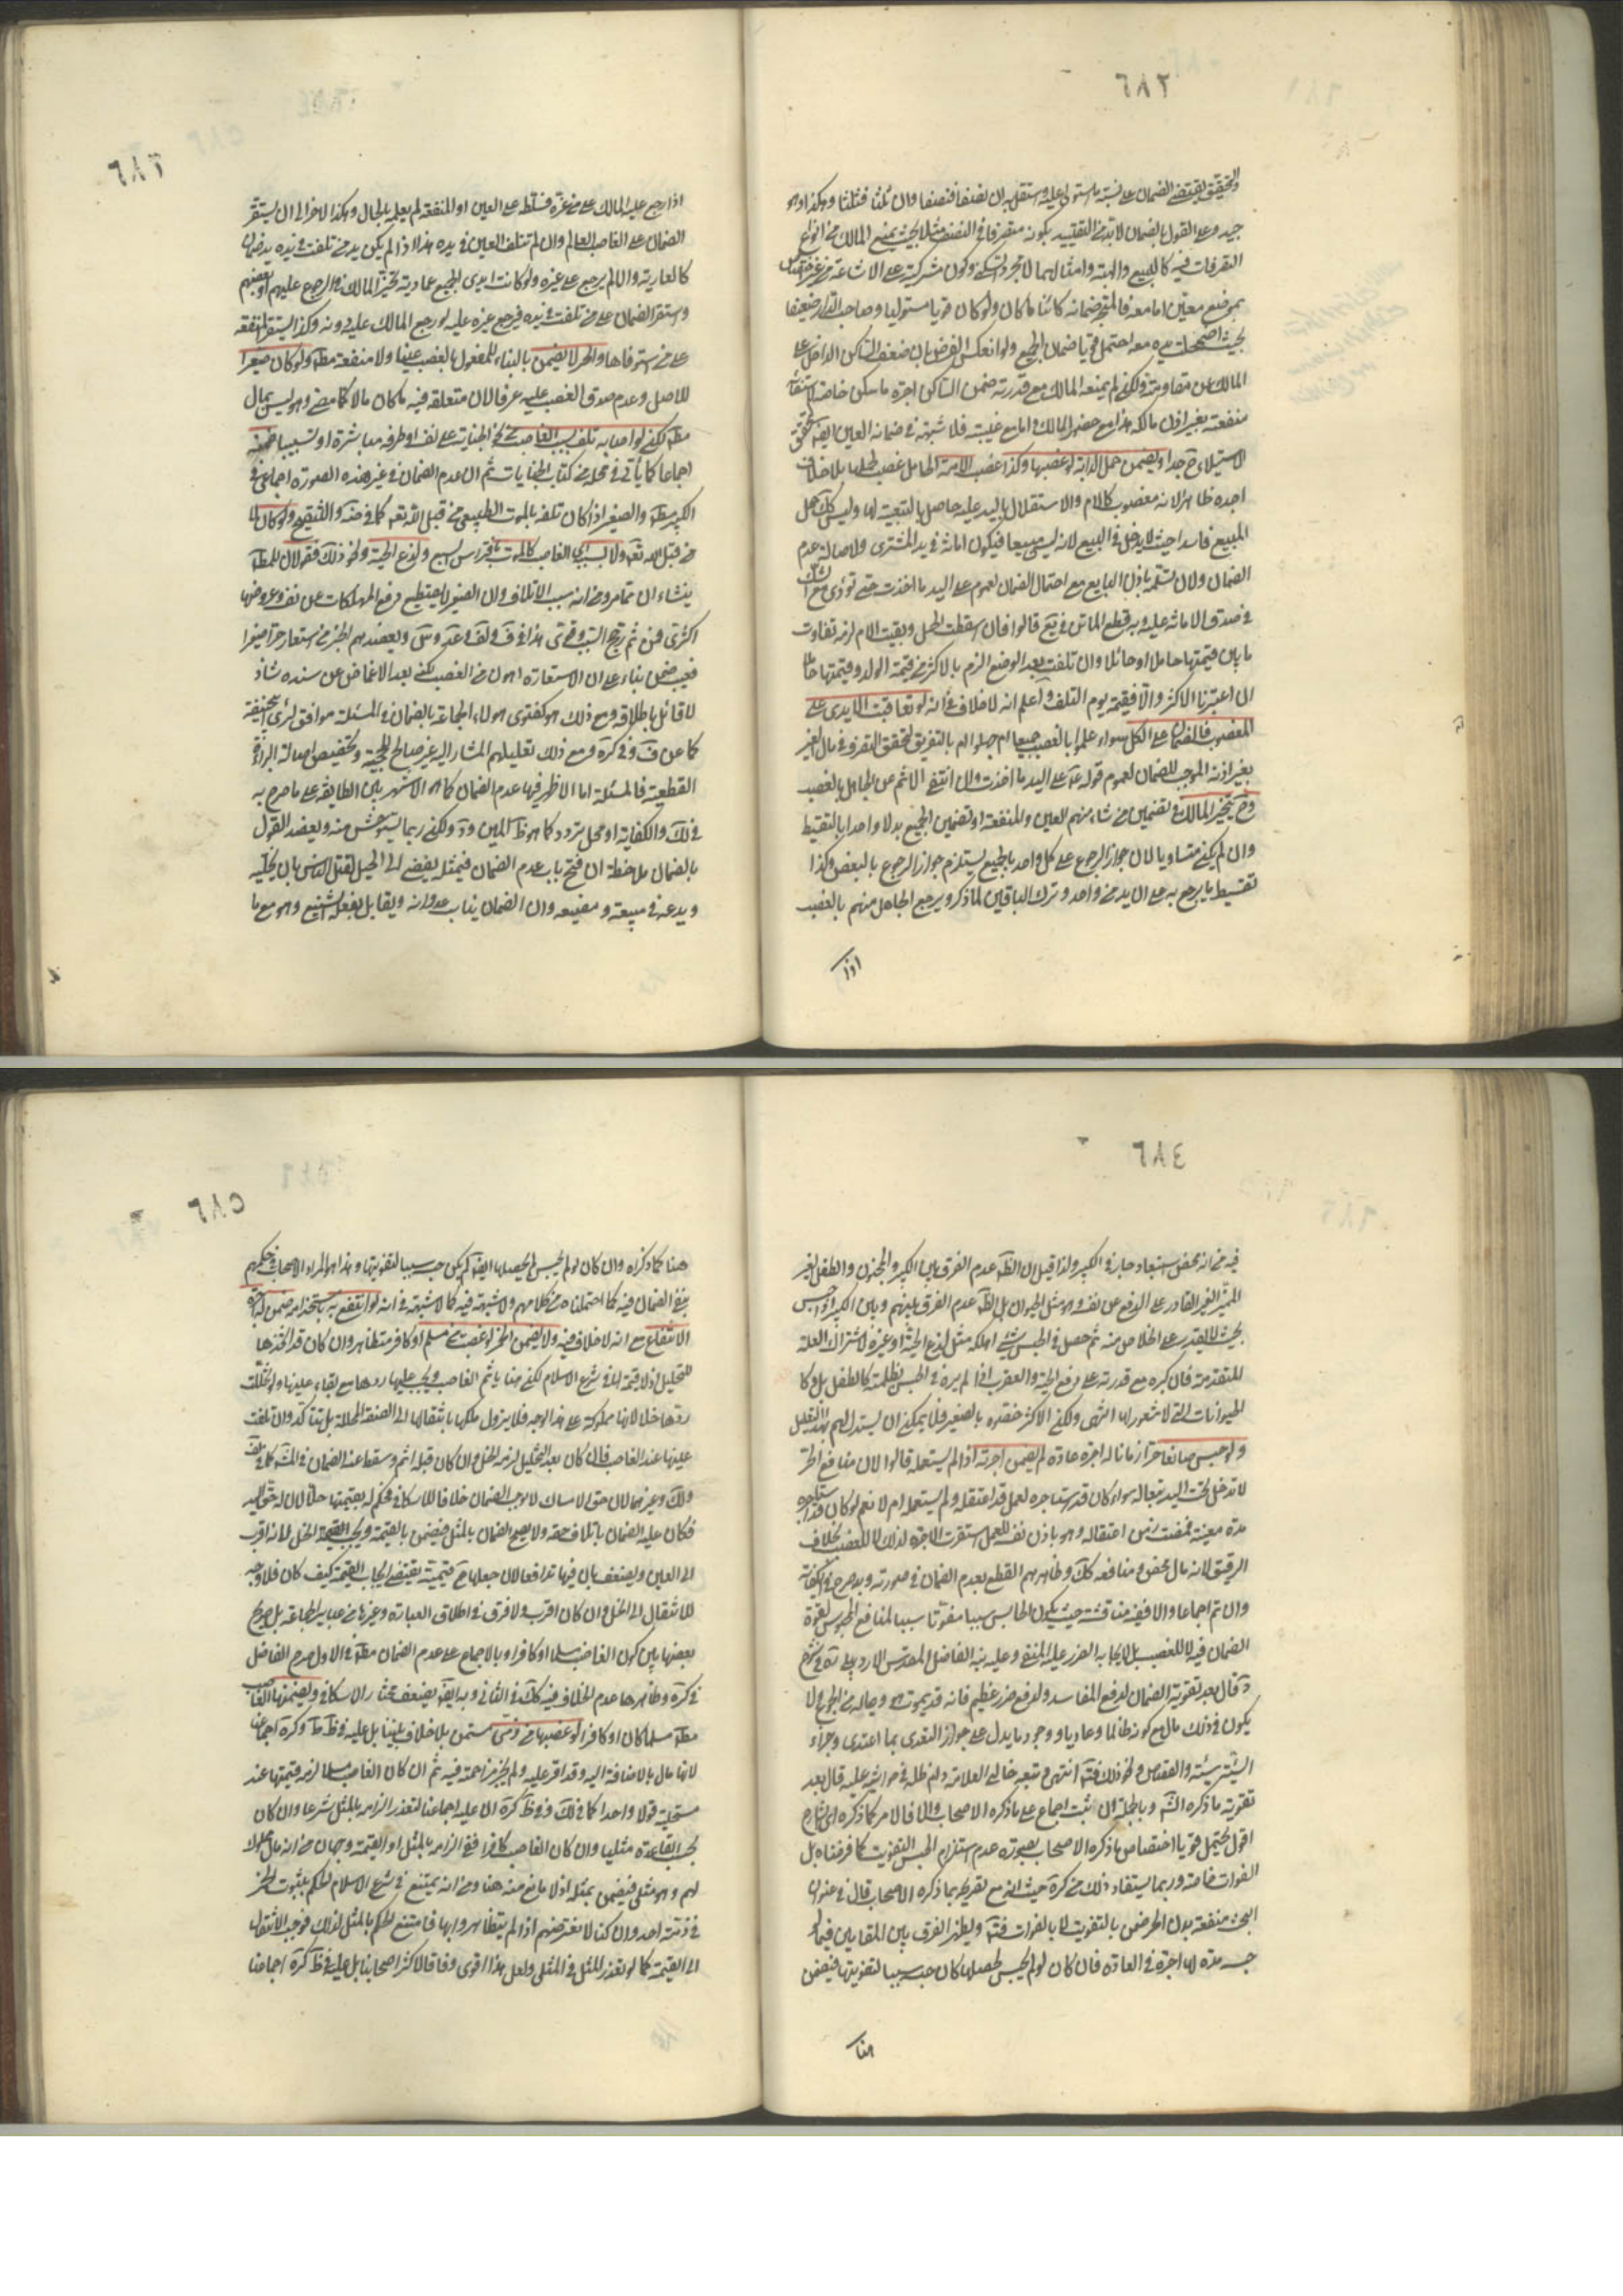 ٦٨٢
والتحقيق يقتضي الضمان على نسبة ما استولى عليه واستقل به ان نصفا فنصفا وان ثلثا فثلثا وهكذا وهو
جيد وعلى القول بالضمان لابد من التقييد بكونه متصرفا في النصف مثلا بحيث يمنع المالك من انواع
التصرفات فيه كالبيع والهبة وامثالهما لا مجرد السكنى وكون شركته على الاشاعة من غير
بموضع معين اما معه فالمتجه ضمانه كائنا ما كان ولو كان قويا مستوليا وصاحب الدار ضعيفا
بحيث اضمحلت يده معه احتمل قويا ضمان الجميع ولو انعكس الفرض بان ضعف الساكن الداخل على
المالك عن مقاومته ولكن لم يمنعه المالك مع قدرته ضمن الساكن اجرة ما سكن خاصة
منفعته بغير اذن مالكه هذا مع حضور المالك واما مع غيبته فلا شبهة في ضمانه العين ايضا لتحقق
الاستيلاء ح جدا ويضمن حمل الدابة لو غصبها وكذا غصب الامة الحامل غصب لحملها بلا خلاف
اجده ظاهرا لانه مغصوب كالام والاستقلال باليد عليه حاصل بالتبعية لها وليس كك حمل
المبيع فاسدا حيث لا يدخل في البيع لانه ليس مبيعا فيكون امانة في يد المشتري ولاصالة عدم
الضمان ولان تسلمه باذن البايع مع احتمال الضمان لعموم على اليد ما اخذت حتى تؤدي مع
في صدق الامانة عليه وبه قطع الماتن في يع قالوا فان اسقطت الحمل وبقيت الام لزمه تفاوت
ما بين قيمتها حاملا وحائلا وان تلفت بعد الوضع الزم بالاكثر من قيمة الولد وقيمتها
ان اعتبرنا الاكثر والا فقيمته يوم التلف واعلم انه لا خلاف في انه لو تعاقبت الايدي على
المغصوب فالضمان على الكل سواء علموا بالغصب جميعا ام جهلوا ام بالتفريق لتحقق التصرف في مال الغير
بغير اذنه الموجب للضمان لعموم قوله ع على اليد ما اخذت وان انتفى الاثم عن الجاهل بالغصب
وح يتخير المالك في تضمين من شاء منهم العين والمنفعة او تضمين الجميع بدلا واحدا بالتقسيط
وان لم يكن متساويا لان جواز الرجوع على كل واحد بالجميع يستلزم جواز الرجوع بالبعض وكذا
تقسيط ما يرجع به على ازيد من واحد وترك الباقين لما ذكر ويرجع الجاهل منهم بالغصب
اذا
اذا رجع عليه المالك على من غره فسلطه على العين او المنفعة لم يعلمه بالحال وهكذا الاخر الى ان يستقر
الضمان على الغاصب العالم وان لم تتلف العين في يده هذا اذا لم يكن يد من تلفت في يده يد ضمان
كالعارية والا لم يرجع على غيره ولو كانت ايدي الجميع عادية تخير المالك في الرجوع عليهم او بعضهم
واستقر الضمان على من تلفت في يده فيرجع غيره عليه لو رجع المالك عليه دونه وكذا يستقر المنفعة
على من استوفاها والحر لا يضمن بالبناء للمفعول بالغصب عينا ولا منفعة مط ولو كان صغيرا
للاصل وعدم صدق الغصب عليه عرفا لان متعلقه فيه ما كان مالا كما مضى وهو ليس بمال
مط لكن لو اصابه تلف بسبب الغاصب كما في الجناية على نفسه او طرفه مباشرة او تسبيبا ضمنه
اجماعا كما يأتي في محله من كتاب الجنايات ثم ان عدم الضمان في غير هذه الصورة اجماعي في
الكبير مط والصغير اذا كان تلفه بالموت الطبيعي من قبل الله تع كما في ضه والتنقيح ولو كان لا
من قبل الله تع ولا بسبب الغاصب كالموت بافتراس سبع ولدغ الحية ونحو ذلك فقولان للمط
ينشاء ان مما مر ومن انه سبب الاتلاف وان الصغير لا يستطيع دفع المهلكات عن نفسه وعروضها
فيعيب ضمن بناء على ان الاستعارة اهون من الغصب لكنه بعد الاغماض عن سنده شاذ
لا قائل باطلاقه ومع ذلك هو كفتوى هؤلاء الجماعة بالضمان في المسئلة موافق لرأي ابي حنيفة
كما عن ف وفي كره ومع ذلك تعليلهم المشار اليه غير صالح للحجية وتخصيص اصالة البراءة
القطعية فالمسئلة اما الاظهر فيها عدم الضمان كما هو الاشهر بين الطايفة على ما صرح به
في لك والكفاية او محل تردد كما هو ظ المتن ود ولكن ربما يستوحش منه ويعضد القول
بالضمان ملاحظة ان فتح باب عدم الضمان فيمثله يفضي الى الحيل لقتل الناس بان يخليه
ويدعه في مسبعة ومضيعة وان الضمان يناسب عدوانه ويقابل بفعله الشنيع وهو مع ما
٦٨٤
فيه من انه محض استبعاد جار في الكبير ولذا قيل ان الظ عدم الفرق بين الكبير والمجنون والطفل الغير
المميز الغير القادر على الدفع عن نفسه وهو مثل الحيوان بل الظ عدم الفرق بينهم وبين الكبير اذا حبس
بحيث لا يقدر على الخلاص منه ثم حصل في الحبس شيء اهلكه مثل لدغ الحية او غيره لاشتراك العلة
المتقدمة فان كبره مع قدرته على دفع الحية والعقرب اذا لم يره في الحبس لظلمته كالطفل بل وكا
لحيوانات التي لا شعور لها انتهى ولكن الاكثر خصوه بالصغير فلا يمكن ان يستدل لهم بهذا التعليل
ولو حبس صانعا حرا زمانا له اجرة عادة لم يضمن اجرته اذا لم يستعمله قالوا لان منافع الحر
لا تدخل تحت اليد تبعا له سواء كان قد استاجره لعمل فاعتقله ولم يستعمله ام لا نعم لو كان قد استاجره
مدة معينة فمضت زمن اعتقاله وهو باذل نفسه للعمل استقرت الاجرة لذلك لا للغصب بخلاف
الرقيق لانه مال محض ومنافعه كك وظاهرهم القطع بعدم الضمان في صورته وبه صرح في الكفاية
وان تم اجماعا والا ففيه مناقشة حيث يكون الحابس سببا مفوتا سببا لمنافع المحبوس لقوة
الضمان فيه لا للغصب بل لايجابه الضرر عليه المنفي وعليه نبه الفاضل المقدس الاردبيلي ره في شرح
د فقال بعد تقوية الضمان لدفع المفاسد ولدفع ضرر عظيم فانه قد يموت هو وعياله من الجوع ولا
يكون في ذلك مال مع كونه ظالما وعاديا ووجود ما يدل على جواز التعدي بما اعتدى وجزاء
السيئة سيئة والقصاص ونحو ذلك فتأمل انتهى وتبعه خالي العلامة دام ظله في حواشيه عليه قال بعد
تقوية ما ذكره الش وبالجملة ان ثبت اجماع على ما ذكره الاصحاب والا فالامر كما ذكره اي الشارح
اقول يحتمل قويا اختصاص ما ذكره الاصحاب بصورة عدم استلزام الحبس التفويت كما فرضناه بل
الفوات خاصة وربما يستفاد ذلك من كره حيث انه مع تصريحه بما ذكره الاصحاب قال في عنوان
البحث منفعة بدن الحر ضمن بالتفويت لا بالفوات فتأمل ويظهر الفرق بين المقامين فيما لو
حبسه مدة لها اجرة في العادة فان كان لو لم يحبس لحصلها كان حبسه سببا لتفويتها فيضمن
هنا
٦٨٥
هنا كما ذكرناه وان كان لو لم يحبس لم يحصلها ايضا لم يكن حبسه سببا لتفويتها وهذا هو مراد الاصحاب في حكمهم
بنفي الضمان فيه كما احتملناه من كلامهم ولا شبهة فيه كما لا شبهة في انه لو انتفع به باستخدامه ضمن له اجرة
الانتفاع مع انه لا خلاف فيه ولا يضمن الخمر لو غصب من مسلم او كافر متظاهر وان كان قد اتخذها
للتخليل اذ لا قيمة لها في شرع الاسلام لكن هنا يأثم الغاصب ويجب عليه ردها مع بقاء عينها ولو تخللت
ردها خلا لانها مملوكة على هذا الوجه فلا يزول ملكها بانتقالها الى الصفة المحللة بل يتأكد وان تلفت
عينها عند الغاصب فان كان بعد التخليل لزمه الخل وان كان قبله اثم وسقط عنه الضمان في
ولك وغيرهما لان حق الامساك لا يوجب الضمان خلافا للاسكافي فحكم له بقيمتها خلا لان له حق اليد
فكان عليه الضمان باتلاف حقه ولا يصح الضمان بالمثل فيضمن بالقيمة ويجب القيمة الخل لانه اقرب
الى العين ويضعف بان فيها تدافعا لان جعلها قيمية يقتضي ايجاب القيمة كيف كان فلا وجه
للانتقال الى الخل وان كان اقرب ولا فرق في اطلاق العبارة وغيرها من عباير الجماعة بل صريح
بعضها بين كون الغاصب مسلما او كافرا وبالاجماع على عدم الضمان مط في الاول صرح الفاضل
في كره وظاهرها عدم الخلاف فيه كك في الثاني وبه ايضا يضعف مختار الاسكافي ويضمنها الغاصب
مط مسلما كان او كافرا لو غصبها من ذمي مستسر بلا خلاف بيننا بل عليه في ظ ط وكره اجماعنا
لانها مال بالاضافة اليه وقد اقر عليه ولم يجز مزاحمته فيه ثم ان كان الغاصب مسلما لزمه قيمتها عند
مستحليه قولا واحدا كما في لك وفي ظ كره ان عليه اجماعنا لتعذر الزامه بالمثل شرعا وان كان
بحسب القاعدة مثليا وان كان الغاصب كافرا ففي الزامه بالمثل او القيمة وجهان من انه مال مملوك
لهم وهو مثلي فيضمن بمثله اذ لا مانع منه هنا ومن انه يمتنع في شرع الاسلام الحكم بثبوت الخمر
في ذمة احد وان كنا لا نعترضهم اذا لم يتظاهروا بها فامتنع الحكم بالمثل لذلك فوجب الانتقال
الى القيمة كما لو تعذر المثل في المثلي ولعل هذا اقوى وفاقا لاكثر اصحابنا بل عليه في ظ كره اجماعنا